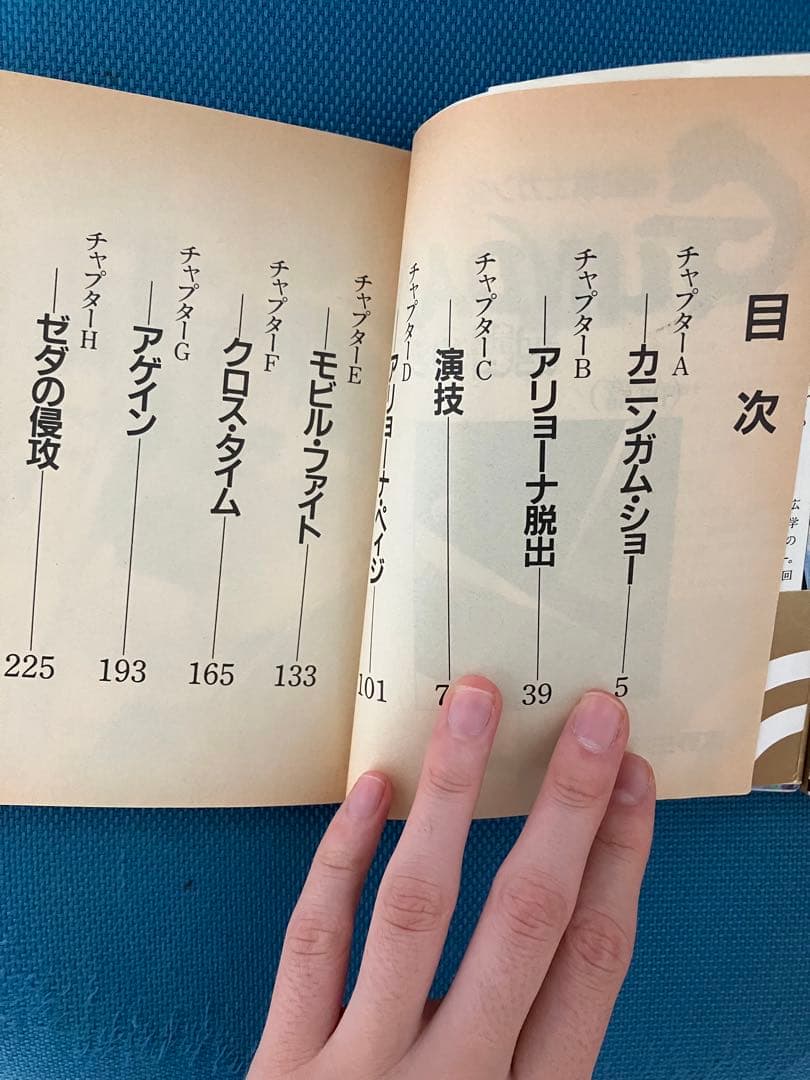 目次
チャプターA
カニンガム・ショー 5
チャプターB
アリョーナ脱出 39
チャプターC
演技 7
チャプターD
アリョーナ・ペイジ 101
チャプターE
モビル・ファイト 133
チャプターF
クロス・タイム 165
チャプターG
アゲイン 193
チャプターH
ゼダの侵攻 225
広
学
の
回